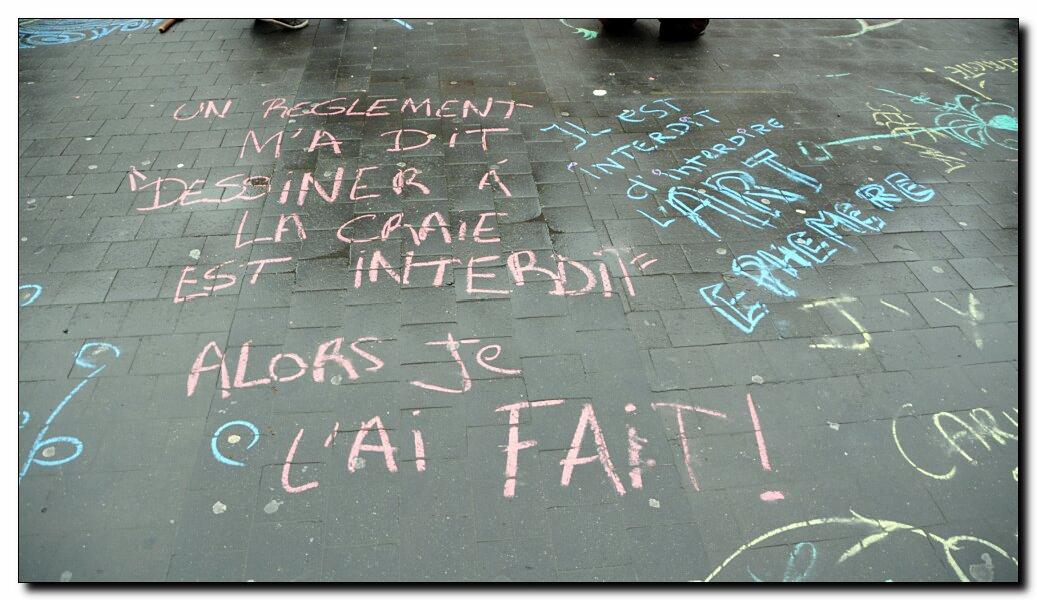 UN REGLEMENT
M'A DiT
"DESSiNER À
LA CRAiE
EST INTERDiT"
ALORS Je
L'Ai FAiT!
IL eST
iNTERDiT
d'interdire
L'ART
EPHEMERE
CARi